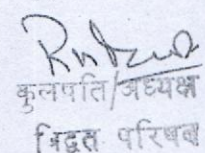 कुलपति/अध्यक्ष
विद्वत परिषद